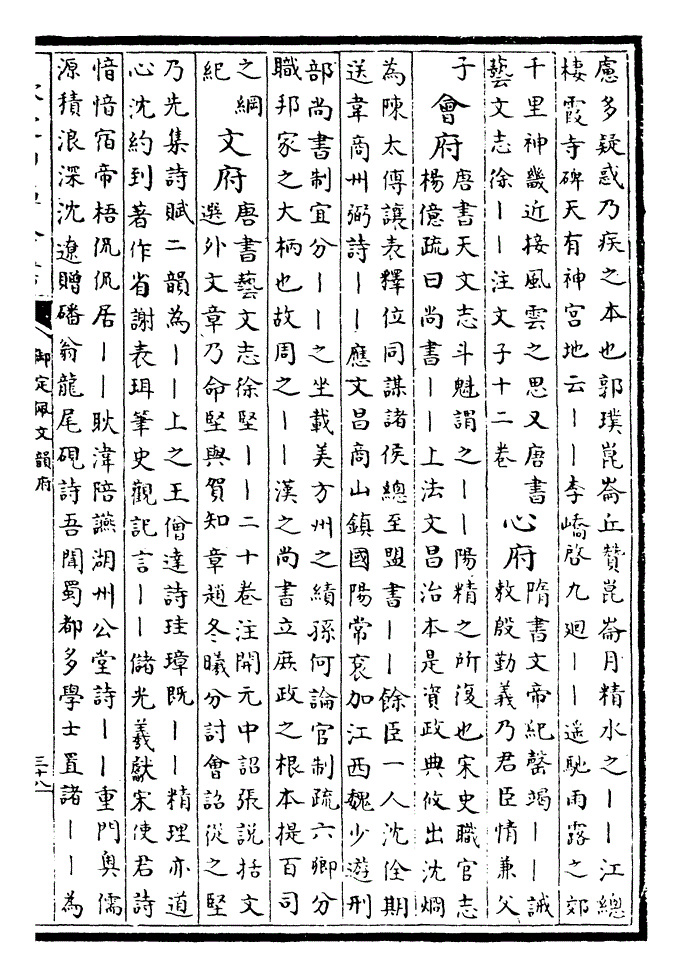 慮多疑惑乃疾之本也郭璞崑崙丘贊崑崙月精水之丨丨江總
棲霞寺碑天有神宫地云丨丨李嶠啓九廻丨丨遥馳雨露之郊
千里神畿近接風雲之思又唐書
藝文志徐丨丨注文子十二卷
心府
隋書文帝紀罄竭丨丨誠
敕殷勤義乃君臣情兼父
子
會府
唐書天文志斗魁謂之丨丨陽精之所復也宋史職官志
楊億疏曰尚書丨丨上法文昌治本是資政典攸出沈烱
為陳太傅讓表釋位同謀諸侯總至盟書丨丨餘臣一人沈佺期
送韋商州弼詩丨丨應文昌商山鎮國陽常衮加江西魏少遊刑
部尚書制宜分丨丨之坐載美方州之績孫何論官制疏六卿分
職邦家之大柄也故周之丨丨漢之尚書立庶政之根本提百司
之綱
紀
文府
唐書藝文志徐堅丨丨二十卷注開元中詔張説括文
選外文章乃命堅與賀知章趙冬曦分討會詔從之堅
乃先集詩賦二韻為丨丨上之王僧達詩珪璋既丨丨精理亦道
心沈約到著作省謝表珥筆史觀記言丨丨儲光羲獻宋使君詩
愔愔宿帝梧侃侃居丨丨耿湋陪讌湖州公堂詩丨丨重門奥儒
源積浪深沈遼贈磻翁龍尾硯詩吾聞蜀都多學士置諸丨丨為
御定佩文韻府
三十八